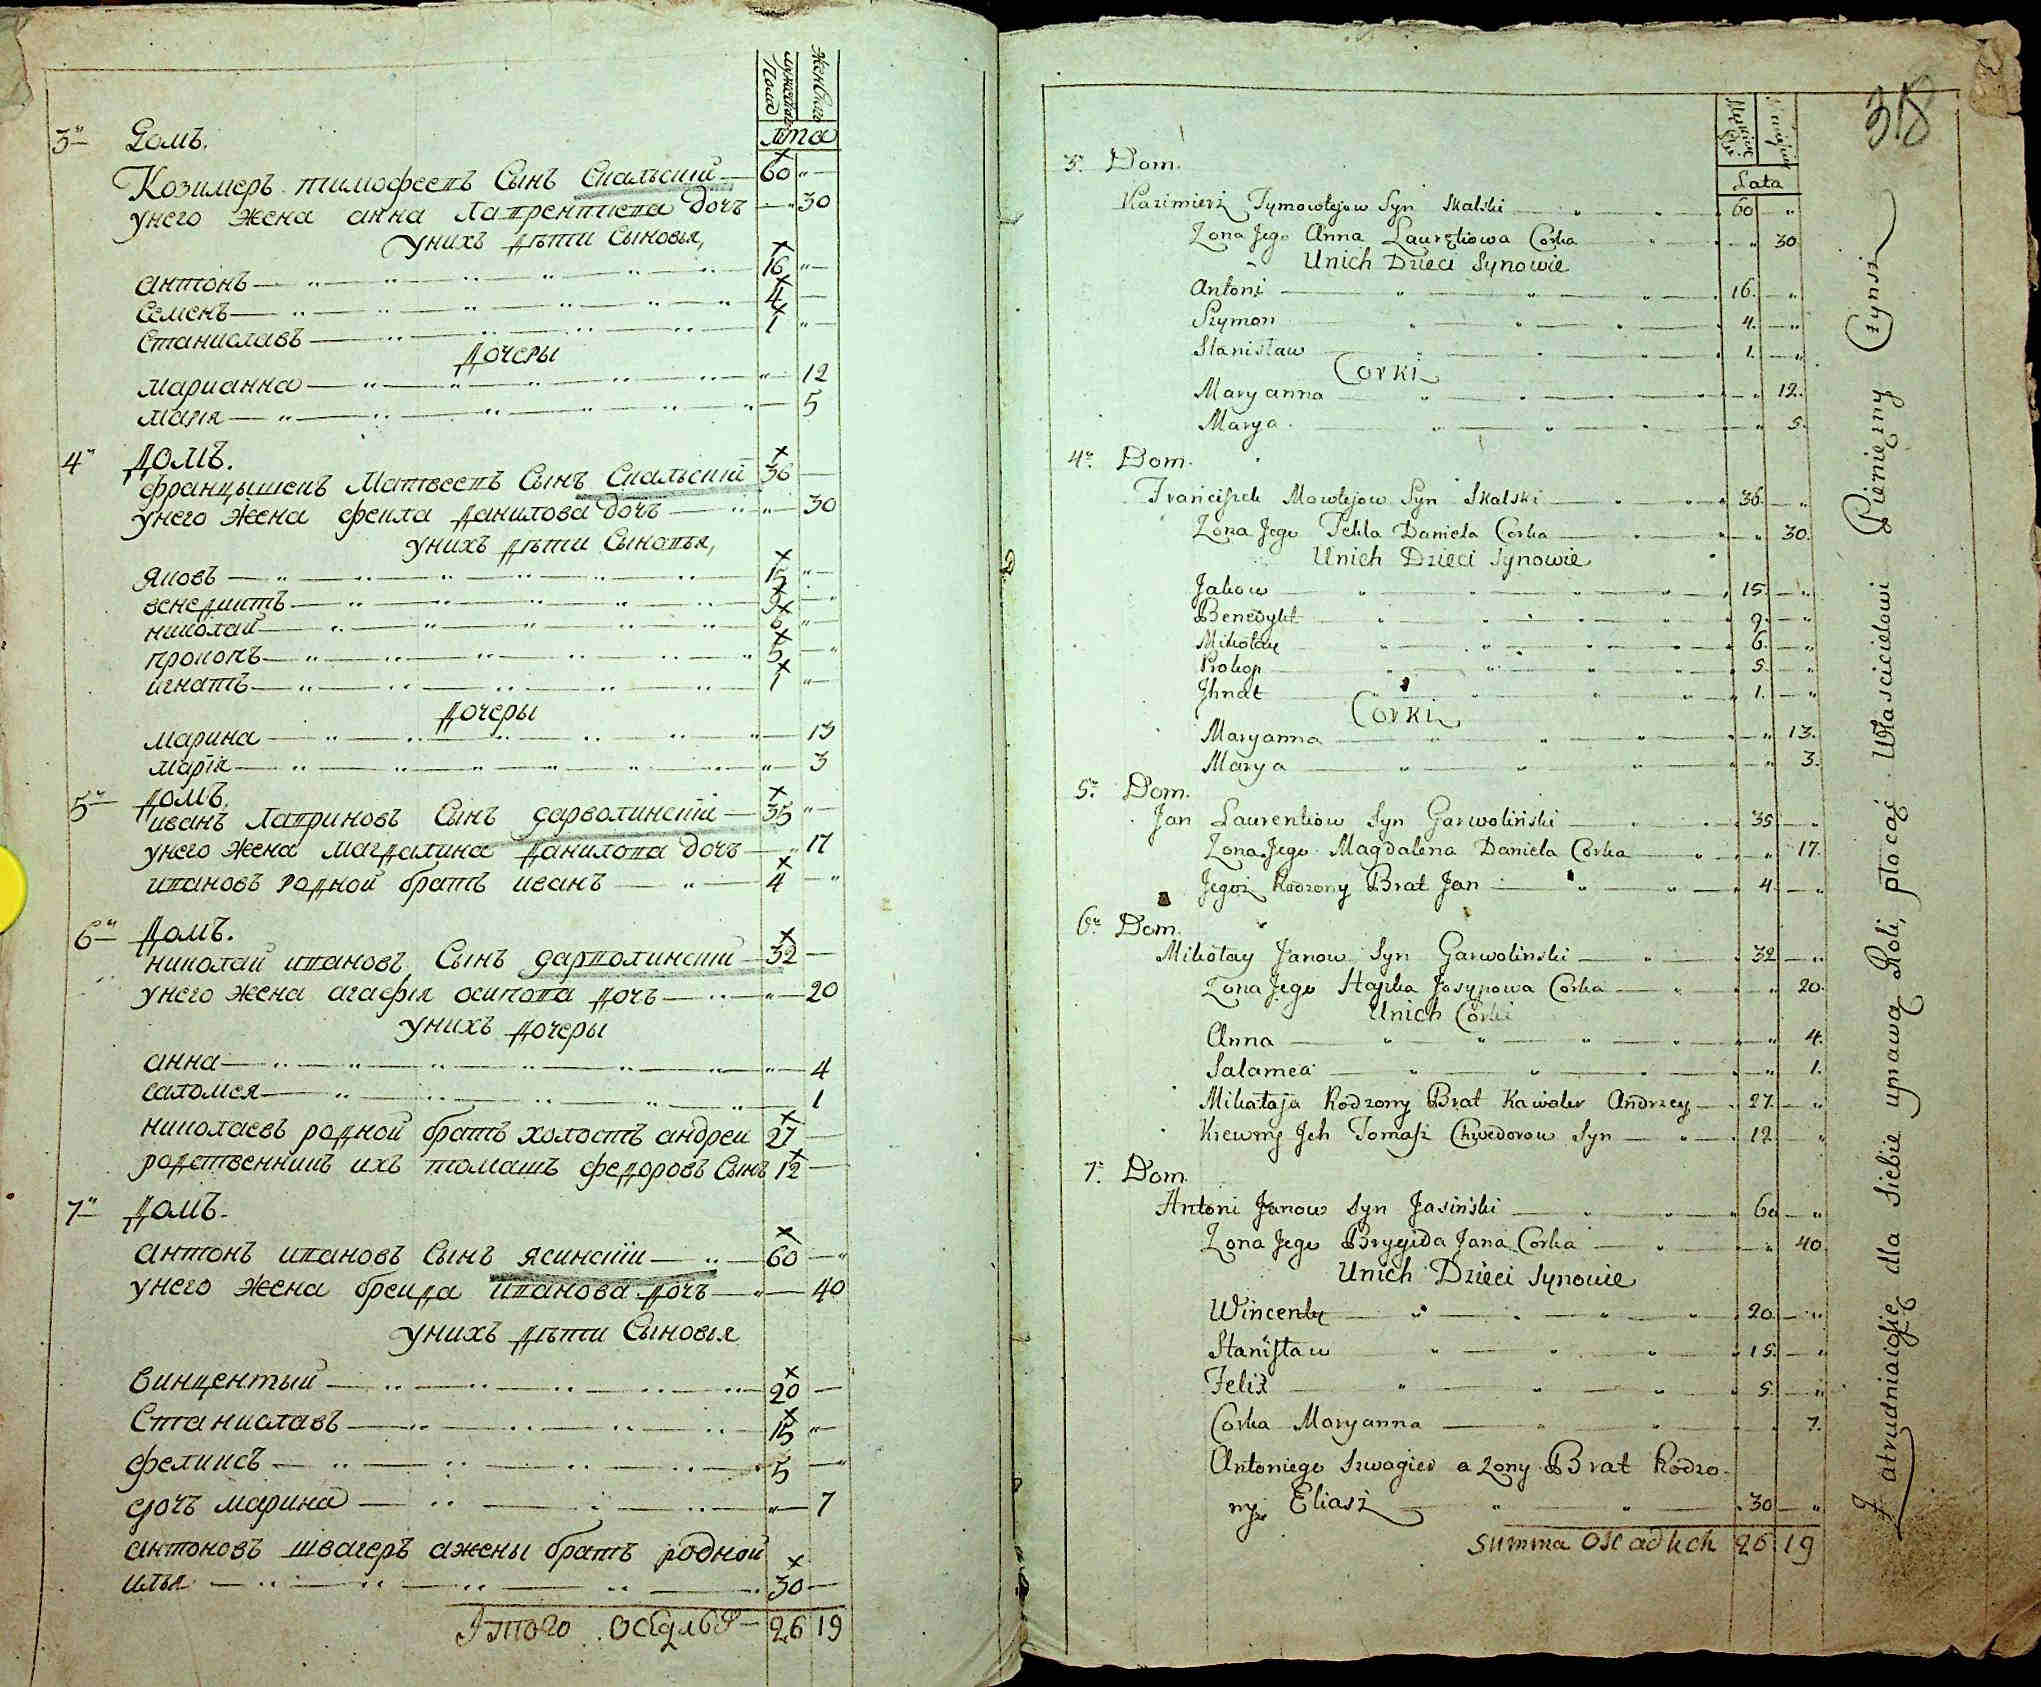 Мужеска Пола
Женскаго
лѣта
3й Домъ.
Козимеръ тимофеевъ Сынъ Скальскій — 60
унего жена анна лаврентиева дочъ — 30
унихъ дѣти Сыновья,
антонъ — 16
Семенъ — 4
Станиславъ — 1
Дочеры
марианна — 12
марія — 5
4й Домъ.
францышекъ Матвеевъ Сынъ Скальскій 36
унего жена фекла данилова дочъ — 30
унихъ дѣти Сыновья,
яковъ — 15
венедиктъ — 9
николай — 6
прокопъ — 5
игнатъ — 1
Дочеры
марина — 13
марія — 3
5й домъ.
иванъ лавриновъ Сынъ гарволинскій — 35
унего жена магдалина данилова дочъ — 17
ивановъ родной братъ иванъ — 4
6й Домъ.
николай ивановъ Сынъ гарволинскій — 32
унего жена агафія осипова дочъ — 20
унихъ дочеры
анна — 4
саломея — 1
николаевъ родной братъ холостъ андрей 27
родственникъ ихъ томашъ федоровъ Сынъ 12
7й Домъ.
антонъ ивановъ Сынъ ясинскій — 60
унего жена бреида иванова дочъ — 40
унихъ дѣти Сыновья
винцентый — 20
Станиславъ — 15
феликсъ — 5
дочъ марина — 7
антоновъ швагеръ ажены братъ родной
илья — 30
Итого оседлыхъ — 26 19
318
Lata
3. Dom.
Kazimierz Tymowtejow Syn Skalski — 60
Zona Jego Anna Laurętiowa Corka — 30
Unich Dzieci Synowie
Antoni — 16.
Szymon — 4.
Stanisław — 1.
Corki
Maryanna — 12.
Marya — 5.
4. Dom.
Franciszek Mowtejow Syn Skalski — 36.
Zona Jego Tekla Daniela Corka — 30.
Unich Dzieci Synowie
Jakow — 15.
Benedykt — 9.
Mikołay — 6.
Prokop — 5.
Jhnat — 1.
Corki
Maryanna — 13.
Marya — 3.
5. Dom.
Jan Laurentiow Syn Garwoliński — 35
Zona Jego Magdalena Daniela Corka — 17.
Jegoż Rodzony Brat Jan — 4
6. Dom.
Mikołay Janow Syn Garwolinski — 32
Zona Jego Hapka Josypowa Corka — 20.
Unich Corki
Anna — 4.
Salamea — 1.
Mikołaja Rodzony Brat Kawaler Andrzey — 27.
Krewny Jch Tomasz Chwedorow Syn — 12.
7. Dom.
Antoni Janow Syn Jasiński — 60
Zona Jego Brygida Jana Corka — 40
Unich Dzieci Synowie
Wincenty — 20.
Stanisław — 15.
Felix — 5.
Corka Maryanna — 7.
Antoniego Szwagier a Zony Brat Rodzo-
ny Eliasz — 30
Summa Osiadłch 26 19
Zatrudniaiąsię dla siebie uprawą Roli, płacąc Właścicielowi Pienięzny Czynsz